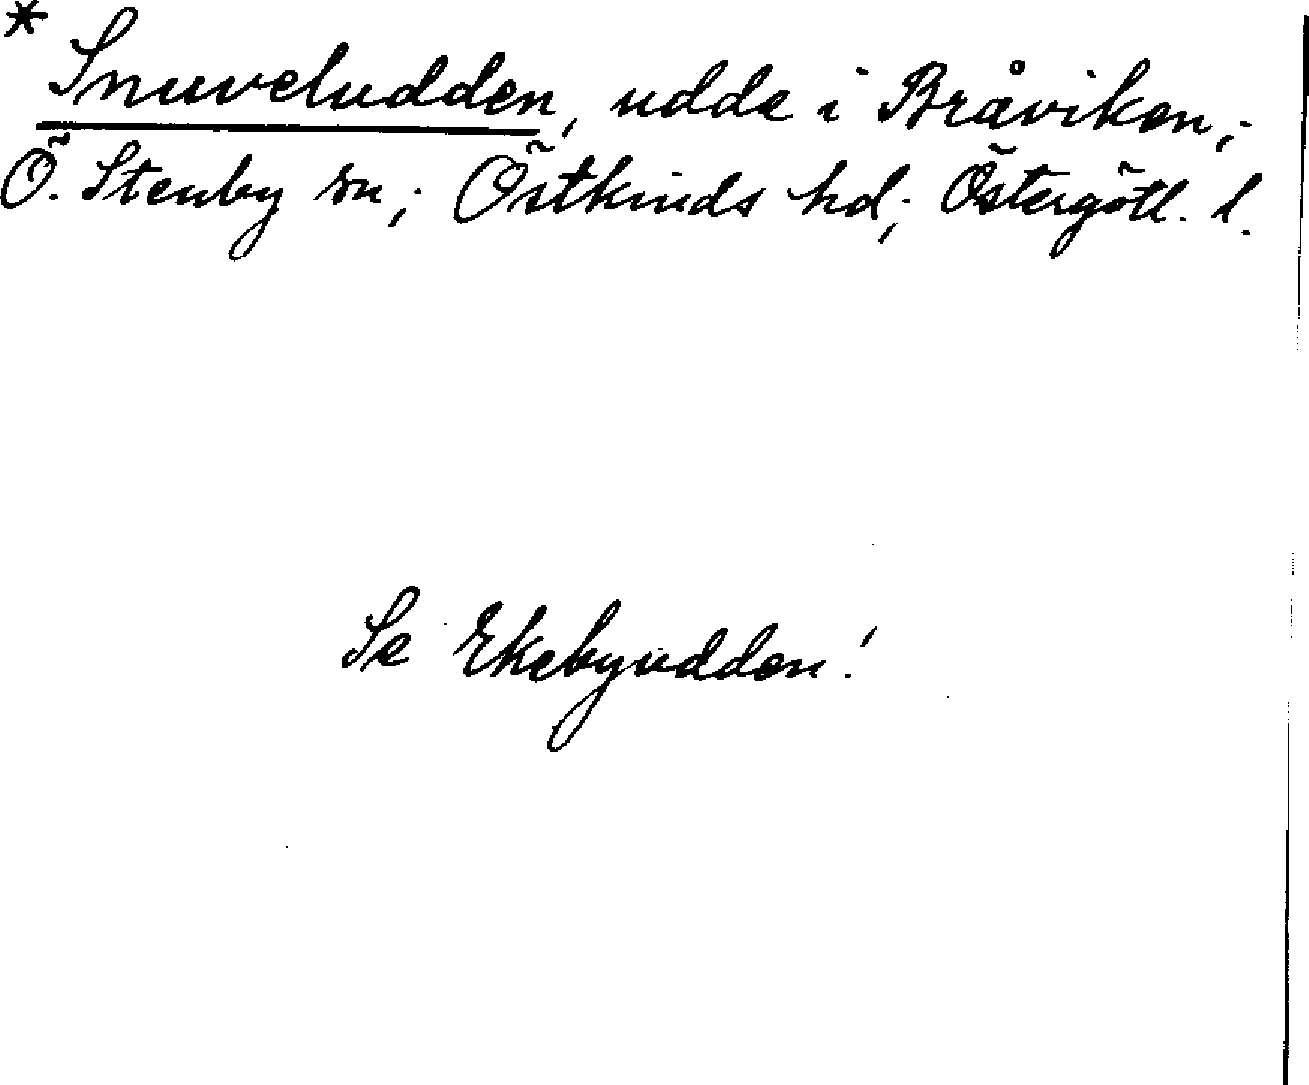 * Snuveludden, udde i Bråviken,;
Ö. Stenby sn,; Östkinds hd,; Östergötl. l.
Se Ekebyudden!